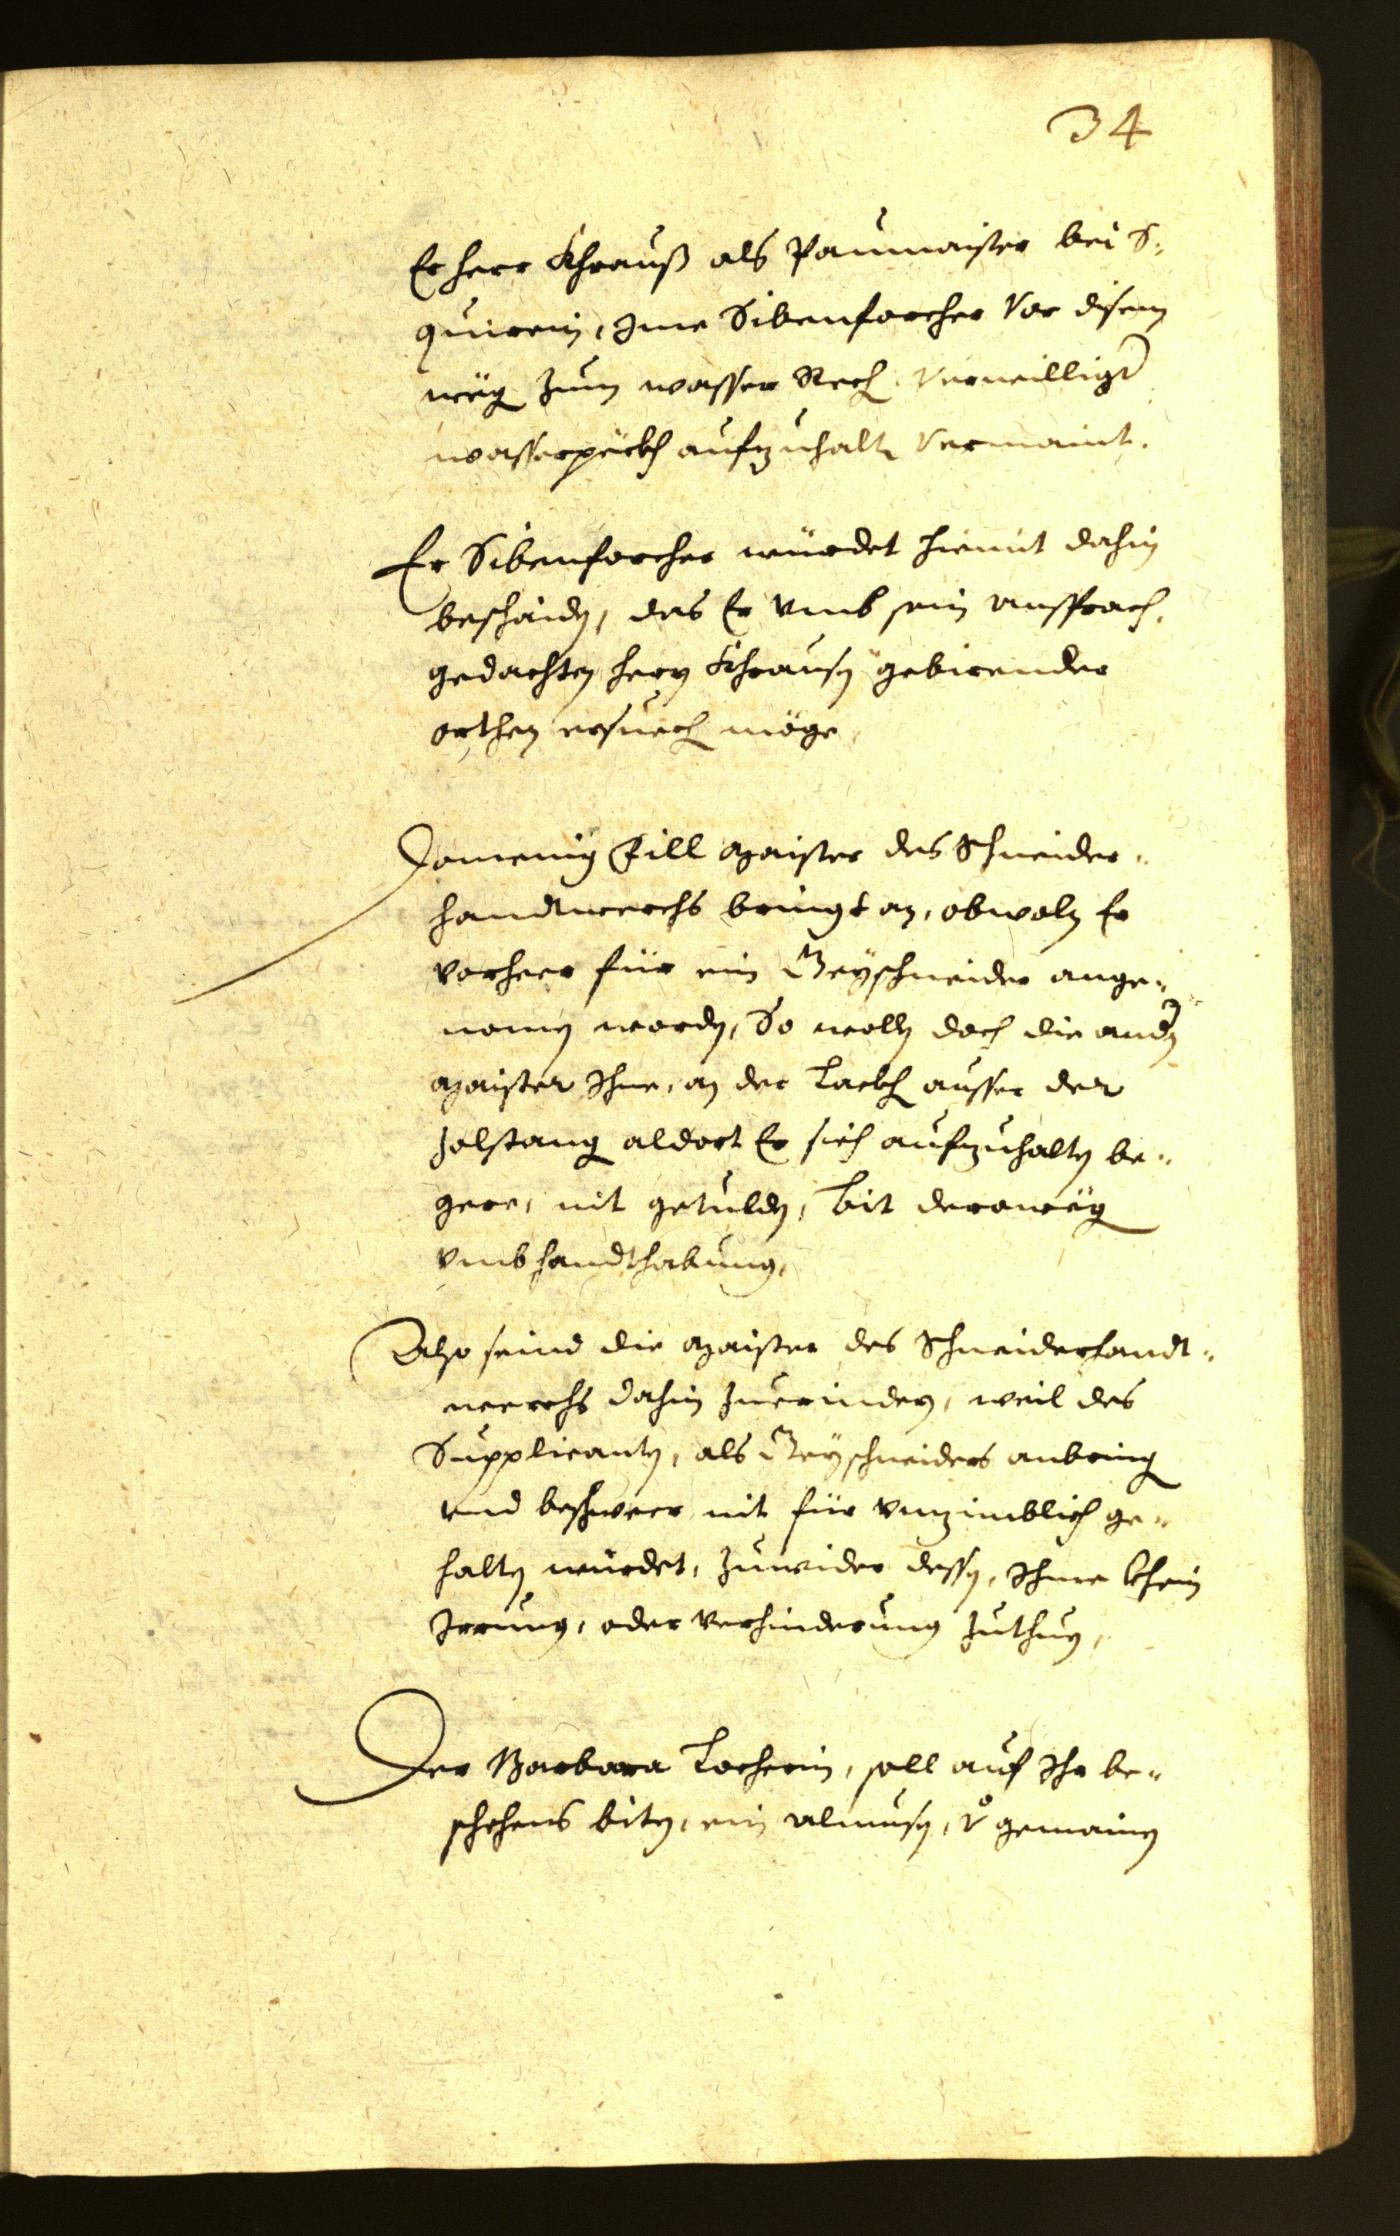 34
Er herr Khrauß als Paumaister bei S:
quirein, Jme Sibenforcher vor disem
weg zum wasser Rech verwilligt
wasserpächl aufzuhalten vermaint.
Er Sibenforcher würdet hiemit dahin
beschaiden, das Er vmb sein ansprach,
gedachten hern Khrausen gebirender
orthen ersuech möge,
Domenig Fill maister des Schneider-
handtwerchs bringt an, obwoln Er
vorheer für ein Beyschneider ange-
nomen worden, So wollen doch die andern
maister Jhne, an der Lackh ausser der
zolstang aldort Er sich aufzuhalten be-
gere, nit getulden, bit derowegen
vmb handthabung,
Also seind die maister des Schneiderhandt-
werchs dahin zuerindern, weil des
Supplicanten, als Beyschneiders anbringen
vnd beschwer nit für vnzimblich ge-
halten würdet, zuwider dessen, Jhme khein
Jrrung, oder verhinderung zuthuen,
Der Barbara Locherin, soll auf Jhr be-
schehens biten, ein almusen, v gemainen